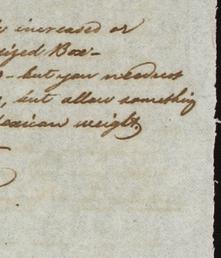 increased or
sized Box—
— but you need not
, but allow something
Mexican weight